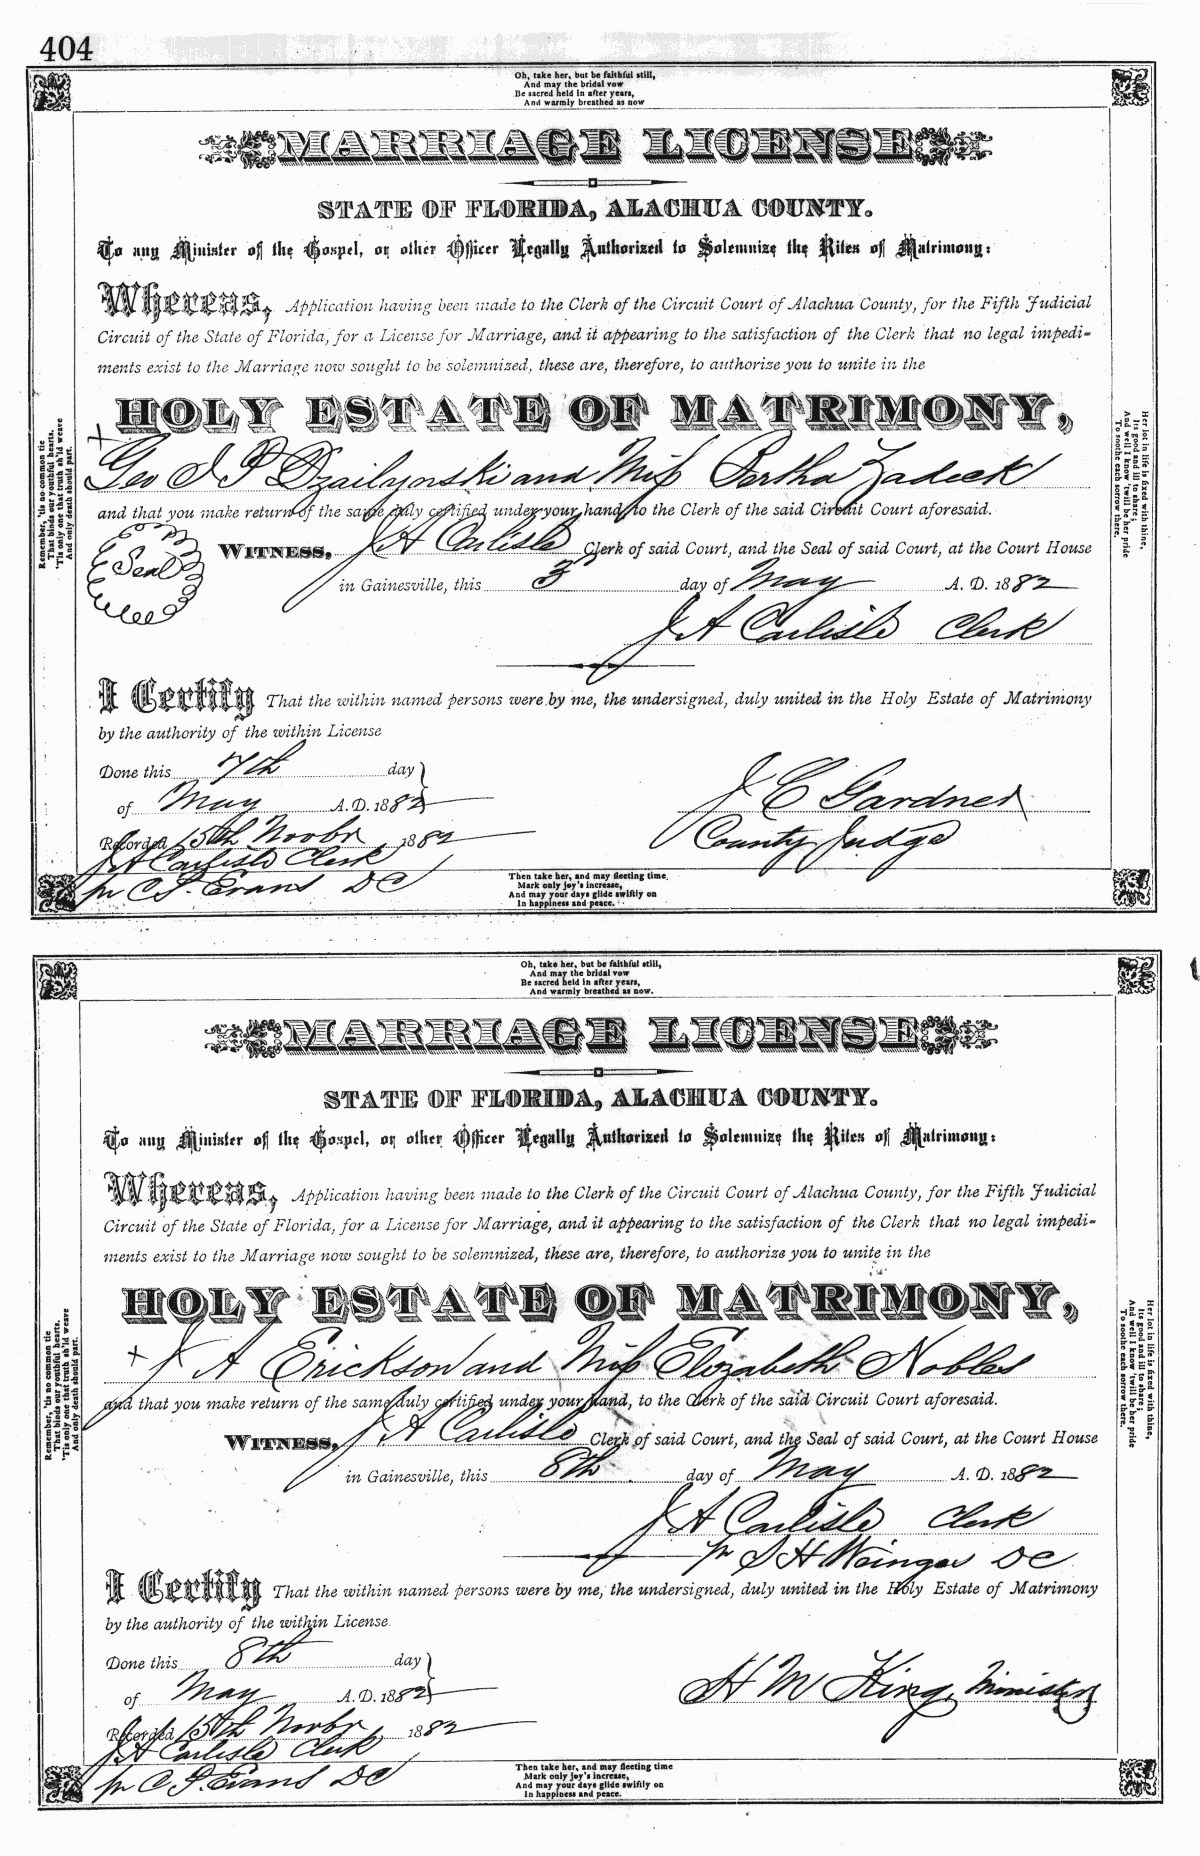 404
Oh, take her, but be faithful still,
And may the bridal vow
Be sacred held in after years,
And warmly breathed as now
MARRIAGE LICENSE
STATE OF FLORIDA, ALACHUA COUNTY.
To any Minister of the Gospel, or other Officer Legally Authorized to Solemnize the Rites of Matrimony:
Whereas, Application having been made to the Clerk of the Circuit Court of Alachua County, for the Fifth Judicial
Circuit of the State of Florida, for a License for Marriage, and it appearing to the satisfaction of the Clerk that no legal impedi-
ments exist to the Marriage now sought to be solemnized, these are, therefore, to authorize you to unite in the
HOLY ESTATE OF MATRIMONY,
x
Geo I P Dzailynski and Miss Bertha Zadeck
and that you make return of the same duly certified under your hand, to the Clerk of the said Circuit Court aforesaid.
Seal
WITNESS, J A Carlisle Clerk of said Court, and the Seal of said Court, at the Court House
in Gainesville, this 3 day of May A. D. 1882
J A Carlisle Clerk
I Certify That the within named persons were by me, the undersigned, duly united in the Holy Estate of Matrimony
by the authority of the within License
Done this 7th day
of May A.D. 1882
J C Gardner
County Judge
Recorded 15th Novbr 1882
J A Carlisle Clerk
pr C P. Evans DC
Then take her, and may fleeting time,
Mark only joy's increase,
And may your days glide swiftly on
In happiness and peace.
Remember, 'tis no common tie
That binds our youthful hearts,
'Tis only one that truth sh'ld weave
And only death should part.
Her lot in life is fixed with thine,
Its good and ill to share;
And well I know 'twill be her pride
To soothe each sorrow there.
Oh, take her, but be faithful still,
And may the bridal vow
Be sacred held in after years,
And warmly breathed as now.
MARRIAGE LICENSE
STATE OF FLORIDA, ALACHUA COUNTY.
To any Minister of the Gospel, or other Officer Legally Authorized to Solemnize the Rites of Matrimony:
Whereas, Application having been made to the Clerk of the Circuit Court of Alachua County, for the Fifth Judicial
Circuit of the State of Florida, for a License for Marriage, and it appearing to the satisfaction of the Clerk that no legal impedi-
ments exist to the Marriage now sought to be solemnized, these are, therefore, to authorize you to unite in the
HOLY ESTATE OF MATRIMONY,
x J A Erickson and Miss Elizabeth Nobles
and that you make return of the same duly certified under your hand, to the Clerk of the said Circuit Court aforesaid.
WITNESS, J A Carlisle Clerk of said Court, and the Seal of said Court, at the Court House
in Gainesville, this 8th day of May A. D. 1882
J A Carlisle Clerk
pr S H Wienges DC
I Certify That the within named persons were by me, the undersigned, duly united in the Holy Estate of Matrimony
by the authority of the within License.
Done this 8th day
of May A.D. 1882
H M King, Minister
Recorded 15th Novbr 1882
J A Carlisle Clerk
pr C P. Evans DC
Then take her, and may fleeting time
Mark only joy's increase,
And may your days glide swiftly on
In happiness and peace.
Remember, 'tis no common tie
That binds our youthful hearts.
'Tis only one that truth sh'ld weave
And only death should part.
Her lot in life is fixed with thine,
Its good and ill to share;
And well I know 'twill be her pride
To soothe each sorrow there.